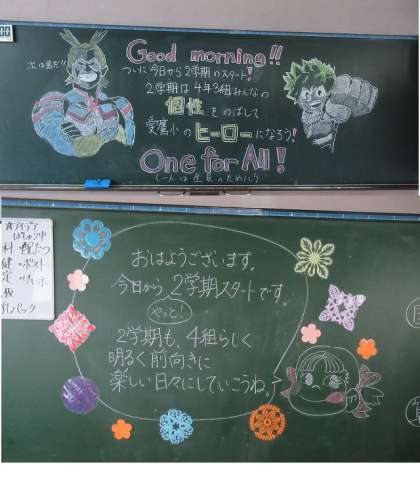 00
Good morning!!
次は君だ!!
ついに今日から2学期のスタート!
2学期は4年3組みんなの
個性をのばして
愛鷹小のヒーローになろう!
One for All!
(一人は全員のために)
おはようございます。
今日から、2学期スタートです。
やっと!
2学期も、4組らしく
明るく前向きに
楽しい日々にしていこうね。